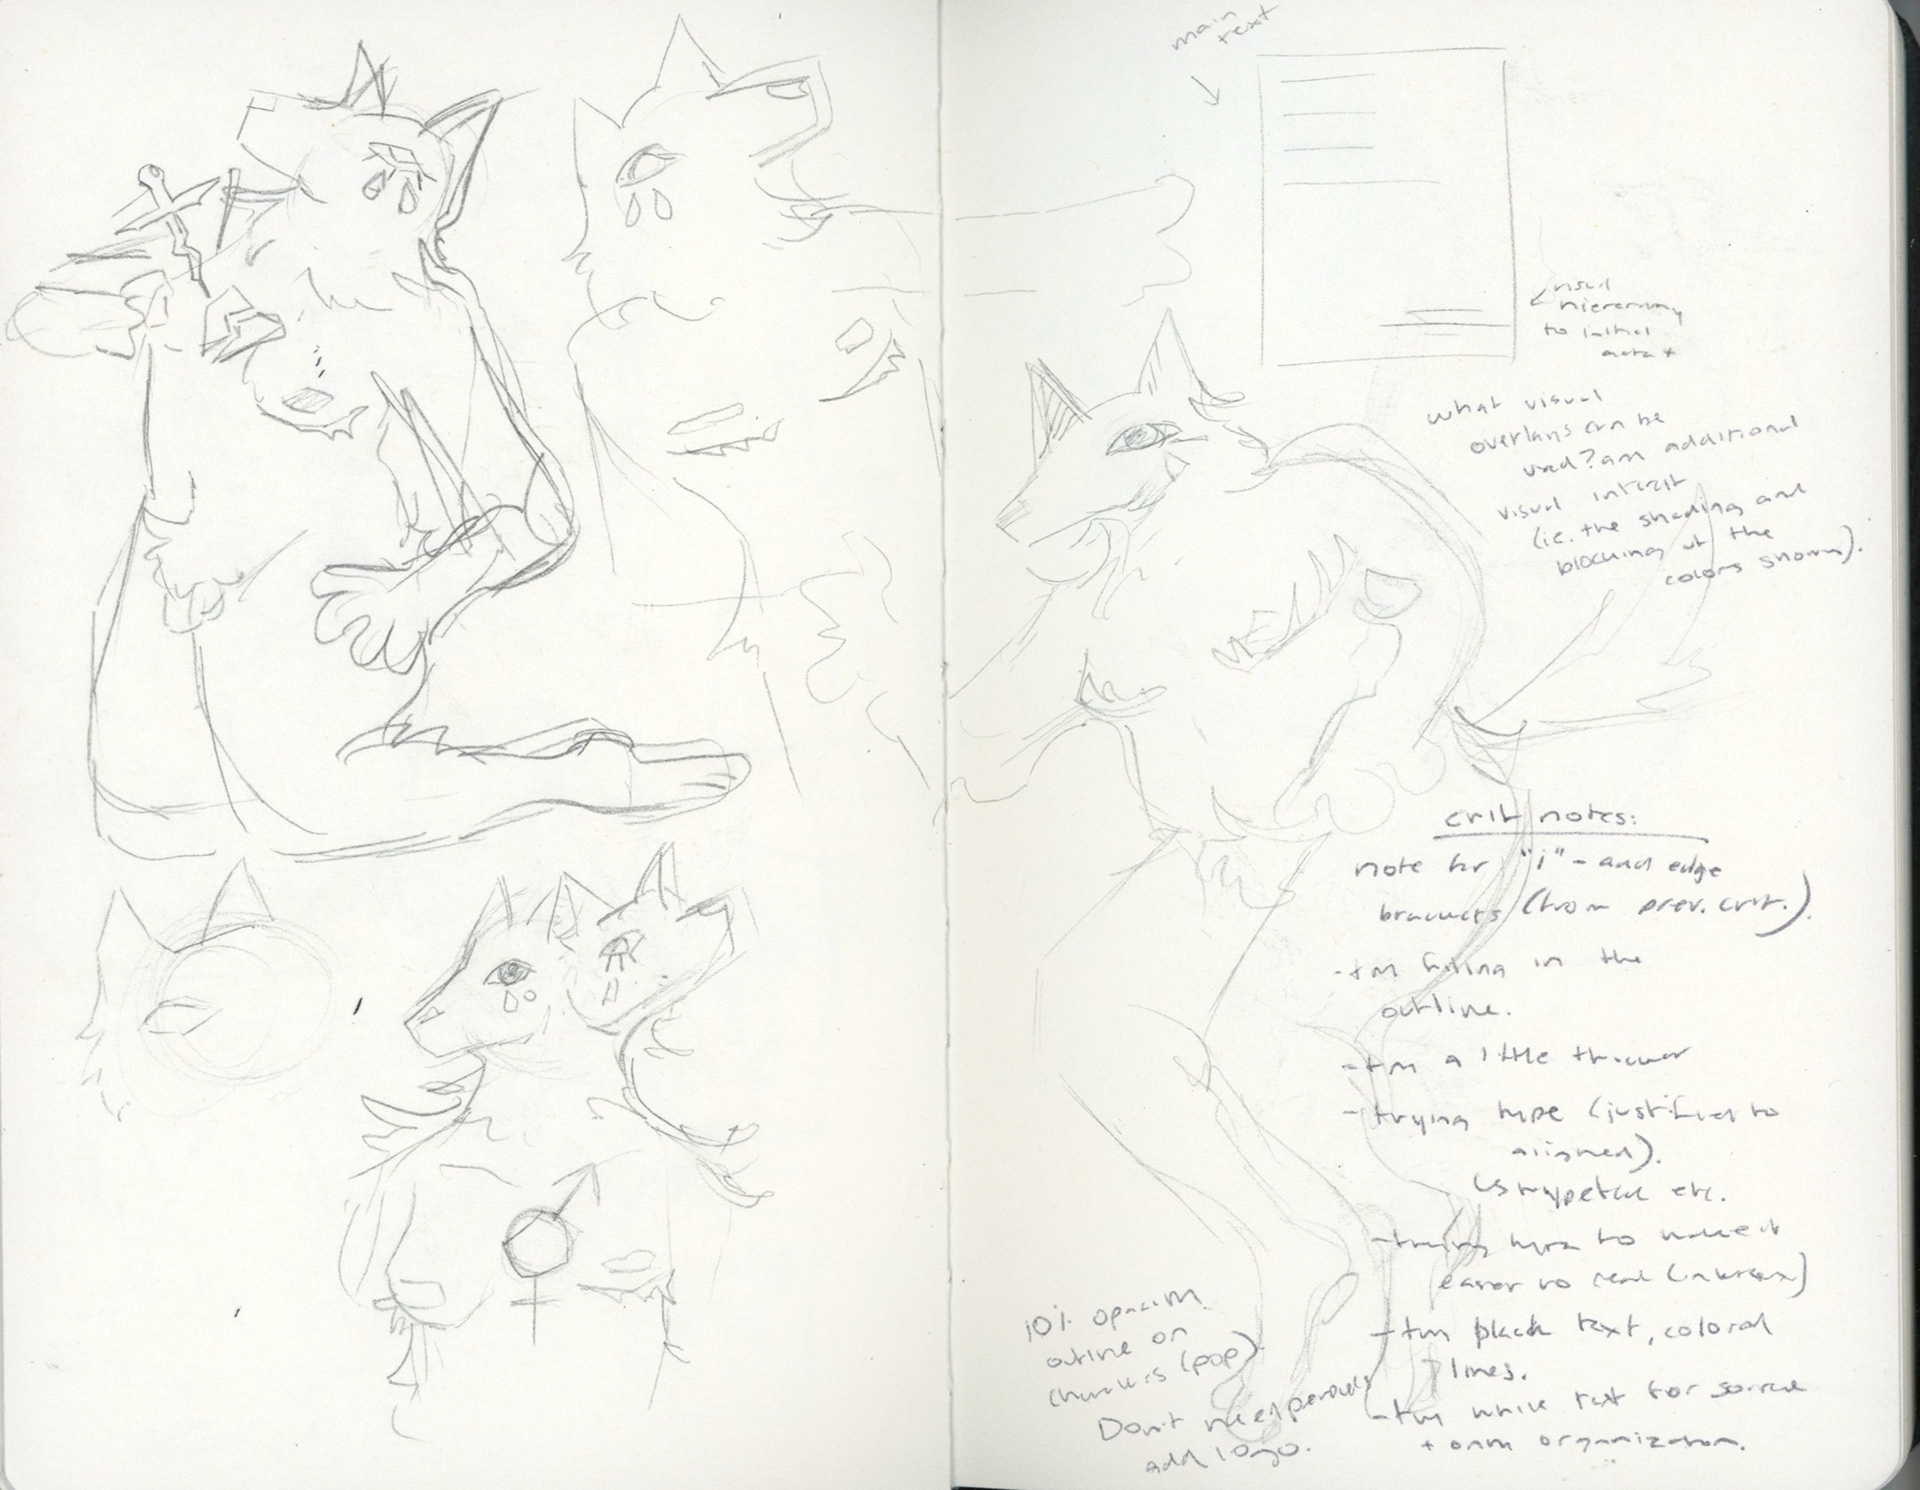 main
text
visual
hierarchy
to initial
what visual
overlays can be
used? am additional
visual interest
(ie. the shading and
blocking of the
colors shown).
crit notes:
note for "i" - and edge
brackets (from prev. crit.).
- try filling in the
outline.
- try a little thicker
- trying type (justified to
aligned).
etc.
- trying type to make it
easier to read
- try black text, colored
lines.
- try white text for source
+ organization.
10% opacity
outline on
characters (pop).
Don't need periods
add logo.